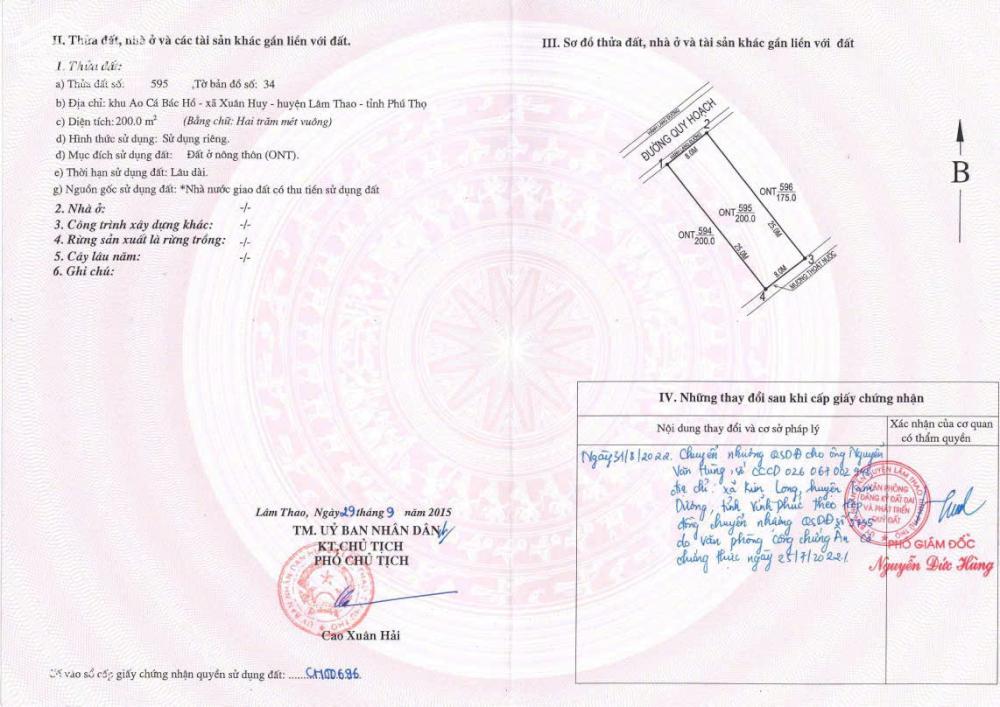 II. Thửa đất, nhà ở và các tài sản khác gắn liền với đất.
1. Thửa đất:
a) Thửa đất số: 595 ,Tờ bản đồ số: 34
b) Địa chỉ: khu Ao Cá Bác Hồ - xã Xuân Huy - huyện Lâm Thao - tỉnh Phú Thọ
c) Diện tích: 200.0 m² (Bằng chữ: Hai trăm mét vuông)
d) Hình thức sử dụng: Sử dụng riêng.
đ) Mục đích sử dụng đất: Đất ở nông thôn (ONT).
e) Thời hạn sử dụng đất: Lâu dài.
g) Nguồn gốc sử dụng đất: *Nhà nước giao đất có thu tiền sử dụng đất
2. Nhà ở: -/-
3. Công trình xây dựng khác: -/-
4. Rừng sản xuất là rừng trồng: -/-
5. Cây lâu năm: -/-
6. Ghi chú:
Lâm Thao, Ngày 29 tháng 9 năm 2015
TM. UỶ BAN NHÂN DÂN
KT.CHỦ TỊCH
PHÓ CHỦ TỊCH
Cao Xuân Hải
Số vào sổ cấp giấy chứng nhận quyền sử dụng đất: ......CH00696.
III. Sơ đồ thửa đất, nhà ở và tài sản khác gắn liền với đất
HÀNH LANG ĐƯỜNG
ĐƯỜNG QUY HOẠCH
HÀNH LANG ĐƯỜNG
1
2
8.0M
ONT 596
175.0
ONT 595
200.0
ONT 594
200.0
25.0M
25.0M
8.0M
3
4
MƯƠNG THOÁT NƯỚC
B
IV. Những thay đổi sau khi cấp giấy chứng nhận
Nội dung thay đổi và cơ sở pháp lý
Xác nhận của cơ quan
có thẩm quyền
Ngày 31/8/2022. Chuyển nhượng QSDĐ cho ông Nguyễn
Văn Hùng, số CCCD 026 067 002
địa chỉ: xã Kim Long, huyện Tam
Dương, tỉnh Vĩnh Phúc theo hợp
đồng chuyển nhượng QSDĐ số
do văn phòng công chứng Ân
chứng thực ngày 25/7/2022.
VĂN PHÒNG
ĐĂNG KÝ ĐẤT ĐAI
VÀ PHÁT TRIỂN
QUỸ ĐẤT
PHÓ GIÁM ĐỐC
Nguyễn Đức Hùng